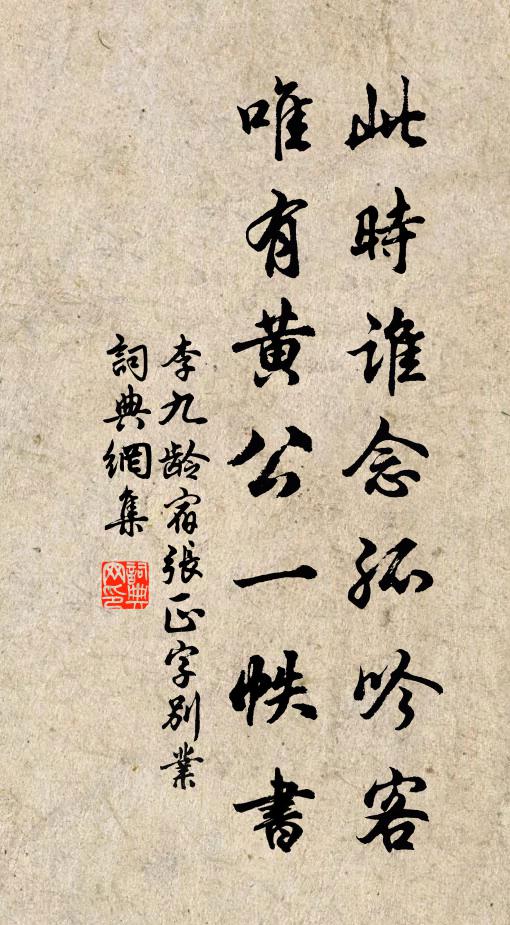 此時誰念孤吟客
唯有黃公一帙書
李九齡宿張正字別業
詞典網集
詞典网印